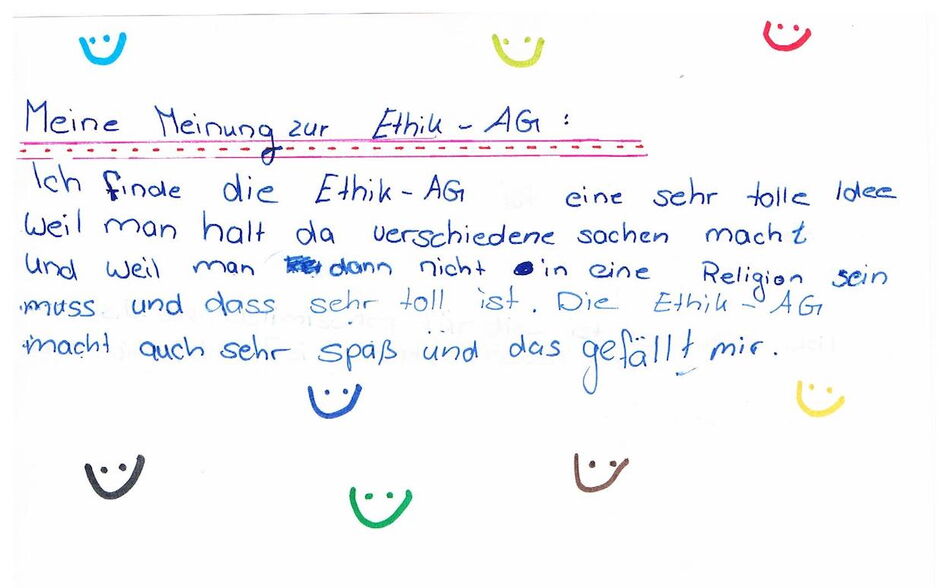 Meine Meinung zur Ethik-AG:
Ich finde die Ethik-AG eine sehr tolle Idee
Weil man halt da verschiedene sachen macht
Und weil man dann nicht in eine Religion sein
muss und dass sehr toll ist. Die Ethik-AG
macht auch sehr spaß und das gefällt mir.